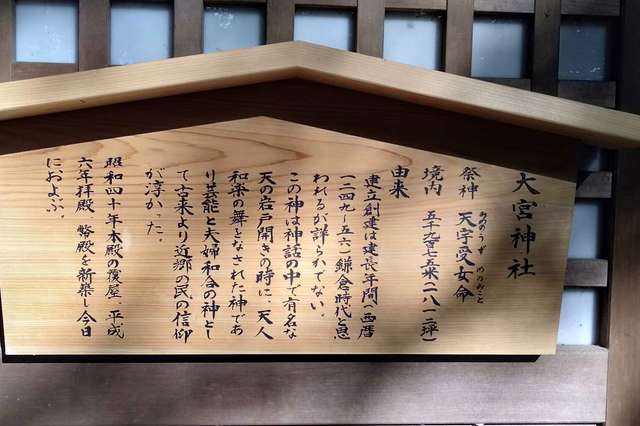 大宮神社
祭神 天宇受女命
あめのうず めのみこと
境内 五千九百七五米(一八一二坪)
由来
建立創建は建長年間(西暦
一二四九〜五六)鎌倉時代と思
われるが詳らかでない。
この神は神話の中で有名な
天の岩戸開きの時に、天人
和楽の舞をなされた神であ
り芸能と夫婦和合の神とし
て古来より近郷の民の信仰
が淳かった。
昭和四十年本殿の覆屋、平成
六年拝殿 幣殿を新築し今日
におよぶ。